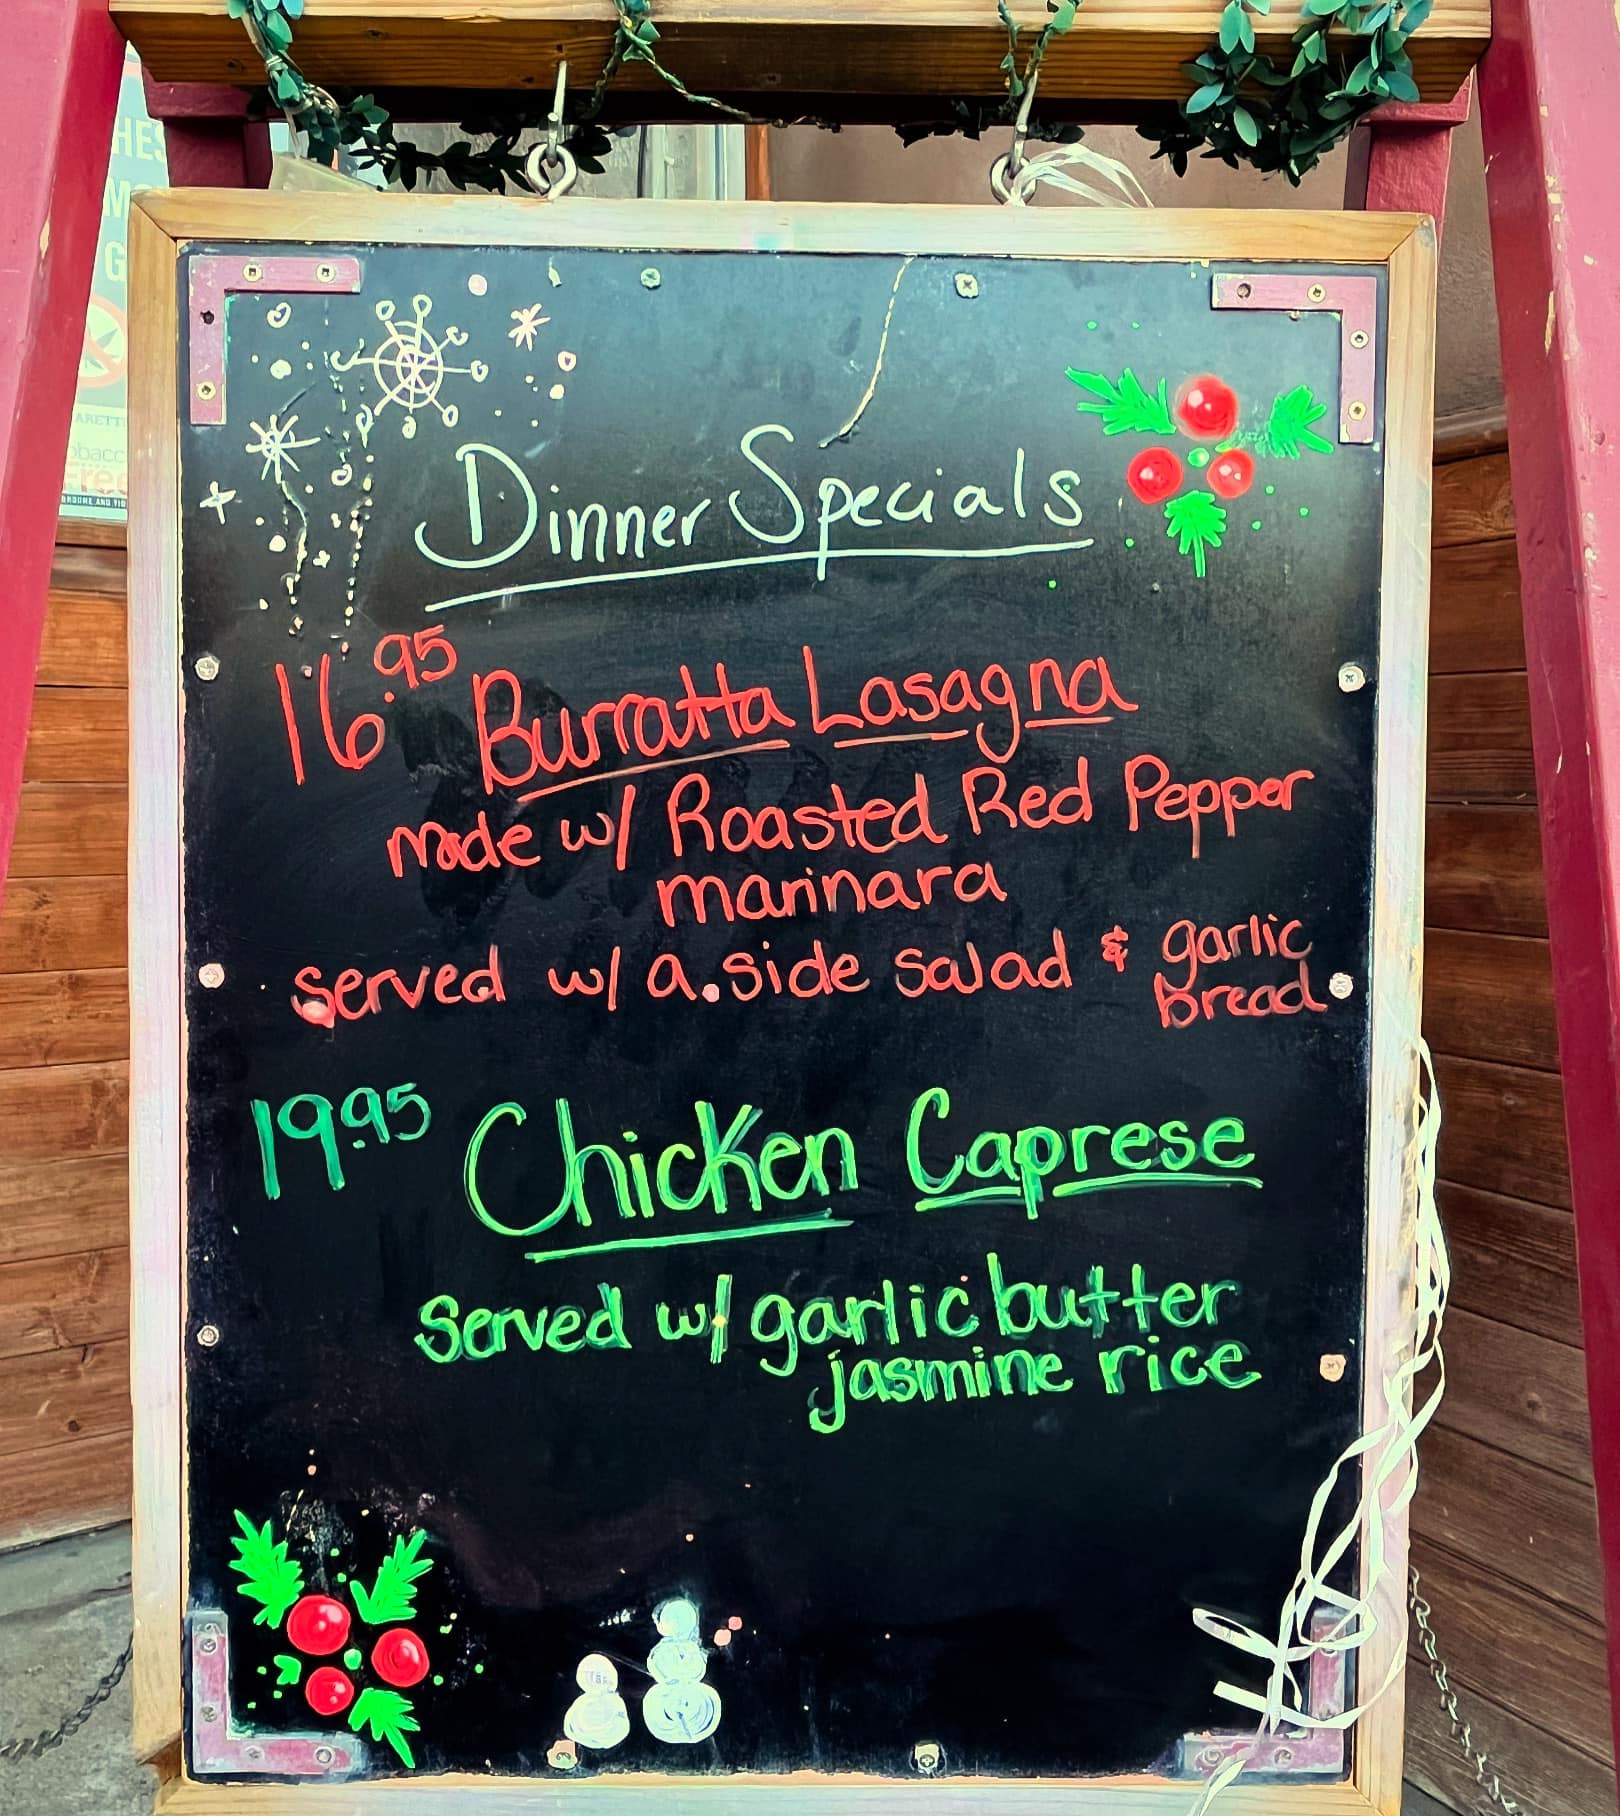 HES
ARETTE
obacc
Free
Dinner Specials
16.95 Burratta Lasagna
made w/ Roasted Red Pepper
marinara
served w/ a side salad & garlic
bread
19.95 Chicken Caprese
Served w/ garlic butter
jasmine rice